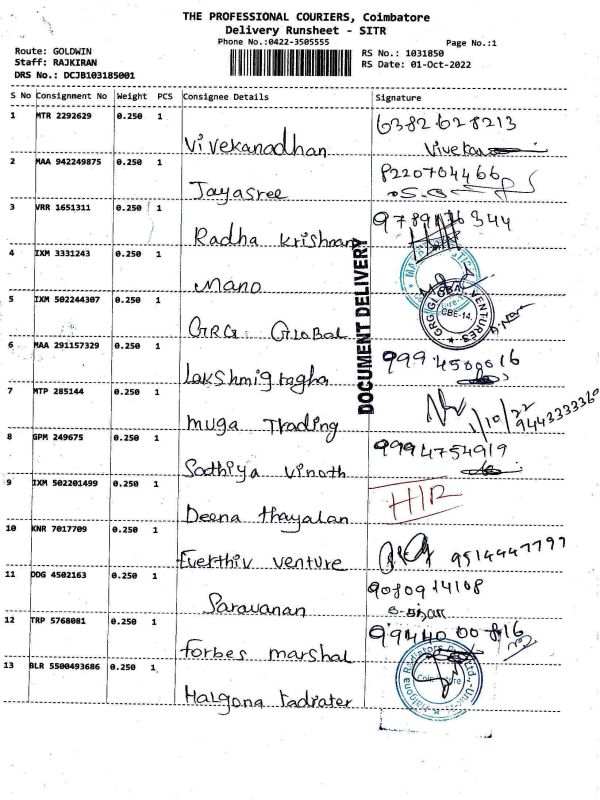 THE PROFESSIONAL COURIERS, Coimbatore
Delivery Runsheet - SITR
Phone No.:0422-3505555 Page No.:1
Route: GOLDWIN RS No.: 1031850
Staff: RAJKIRAN RS Date: 01-Oct-2022
DRS No.: DCJB103185001
S No Consignment No Weight PCS Consignee Details Signature
1 MTR 2292629 0.250 1 Vivekanadhan 6382628213
Vivekan
2 MAA 942249875 0.250 1 Jayasree 8220704466
3 VRR 1651311 0.250 1 Radha Krishnan
4 IXM 3331243 0.250 1 Mano
DOCUMENT DELIVERY
5 IXM 502244307 0.250 1 GRG Global
GRG GLOBAL VENTURES
CBE-14.
6 MAA 291157329 0.250 1 Lakshmi
7 MTP 285144 0.250 1 Muga Trading 1/10/22
9443333360
8 GPM 249675 0.250 1 Sathiya Vinoth 9994754919
9 IXM 502201499 0.250 1 Deena thayalan
10 KNR 7017709 0.250 1 Everthiv venture 9514447797
11 DDG 4502163 0.250 1 Saravanan 9080914108
12 TRP 5768081 0.250 1 Forbes marshal 9944000816
13 BLR 5500493686 0.250 1 Halgona radiater